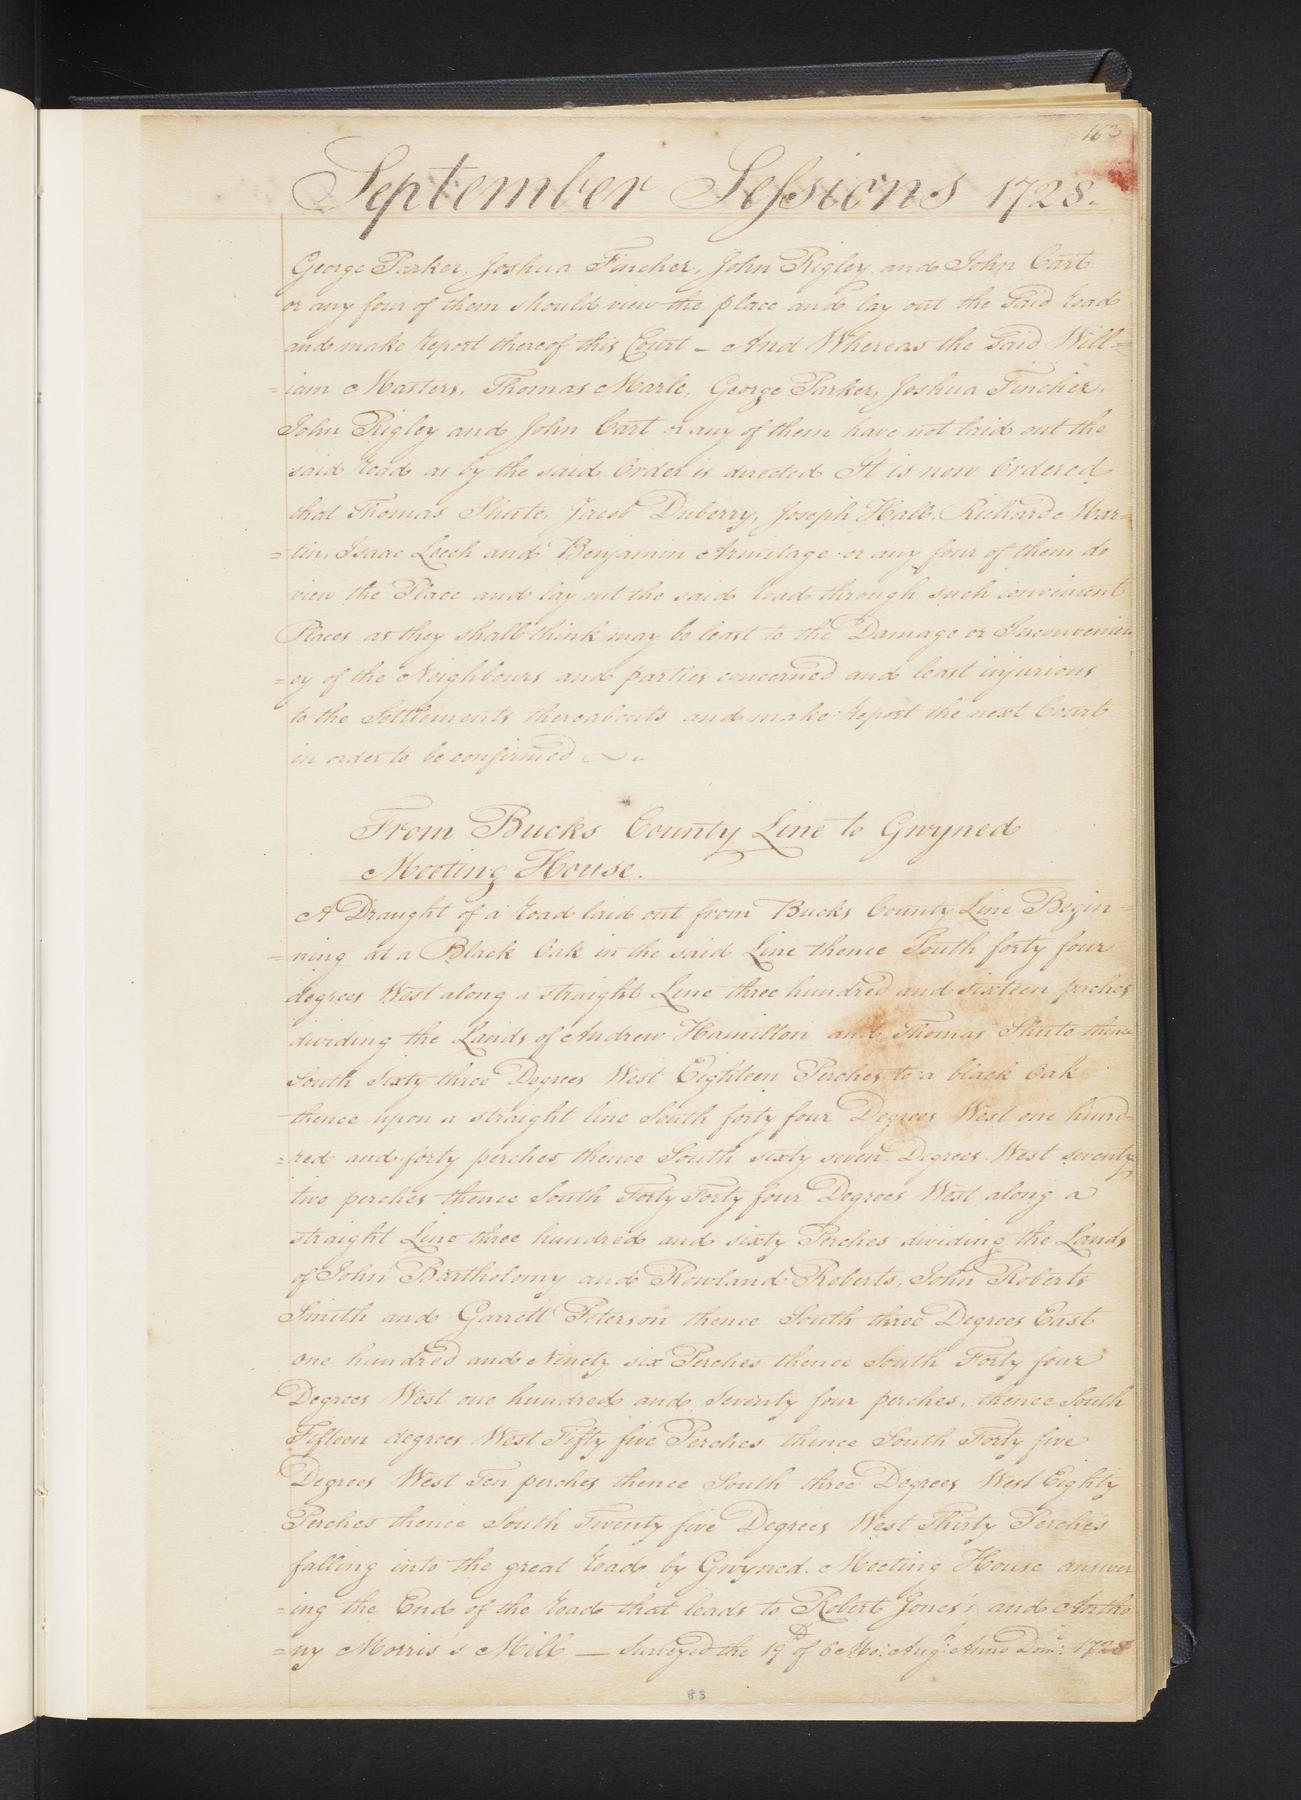 163
September Sessions 1728.
George Parker, Joshua Fincher, John Rigley and John Cart
or any four of them should view the place and lay out the said road
and make report thereof this Court – And Whereas the said Will=
=iam Masters, Thomas Marle, George Parker, Joshua Fincher,
John Rigley and John Cart or any of them have not laid out the
said road as by the said Order is directed It is now Ordered
that Thomas Shute, Jacob Duberry, Joseph Hall, Richard Mar=
=tin, Isaac Leech and Benjamin Armitage or any four of them do
view the Place and lay out the said road through such convenient
Places as they shall think may be least to the Damage or Inconvenien
=cy of the Neighbours and parties concerned and least injurious
to the Settlements thereabouts and make report the next Court
in order to be confirmed
From Bucks County Line to Gwyned
Meeting House.
A Draught of a road laid out from Bucks County Line Begin=
=ning at a Black Oak in the said Line thence South forty four
degrees West along a straight Line three hundred and sixteen perches
dividing the Lands of Andrew Hamilton and Thomas Shute thence
South sixty three Degrees West Eighteen Perches to a black Oak
thence upon a straight line South forty four Degrees West one hund=
=red and forty perches thence South sixty seven Degrees West seventy
two perches thence South Forty Forty four Degrees West along a
straight Line three hundred and sixty Perches dividing the Lands
of John Bartholomy and Rowland Roberts, John Roberts
Smith and Garrett Peterson thence South three Degrees East
one hundred and Ninety six Perches thence South Forty four
Degrees West one hundred and Seventy four perches, thence South
Fifteen degrees West Fifty five Perches thence South Forty five
Degrees West Ten perches thence South three Degrees West Eighty
Perches thence South Twenty five Degrees West Thirty Perches
falling into the great road by Gwyned. Meeting House answer
=ing the End of the road that leads to Robert Jones's and Antho
=ny Morris's Mill — Surveyed the 19th of 6 Mo: Aug: Anno Dom: 1728
83